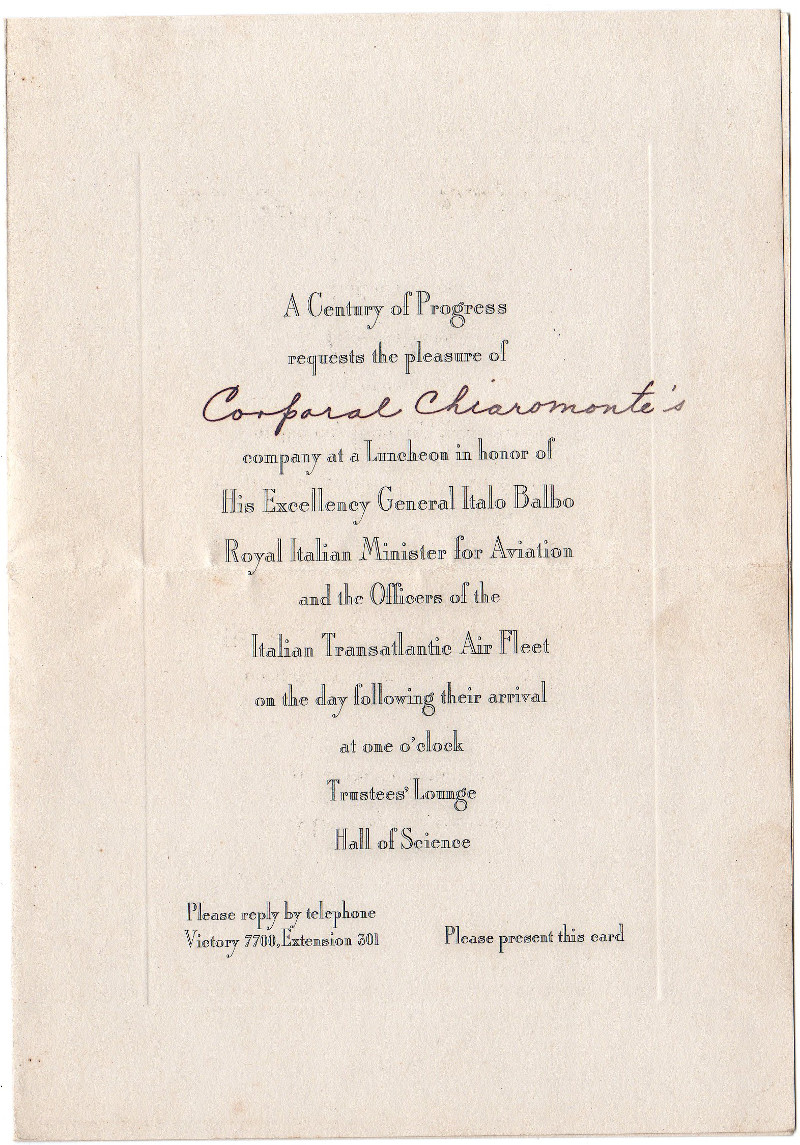 A Century of Progress
requests the pleasure of
Corporal Chiaromonte's
company at a Luncheon in honor of
His Excellency General Italo Balbo
Royal Italian Minister for Aviation
and the Officers of the
Italian Transatlantic Air Fleet
on the day following their arrival
at one o'clock
Trustees' Lounge
Hall of Science
Please reply by telephone
Victory 7700, Extension 301
Please present this card